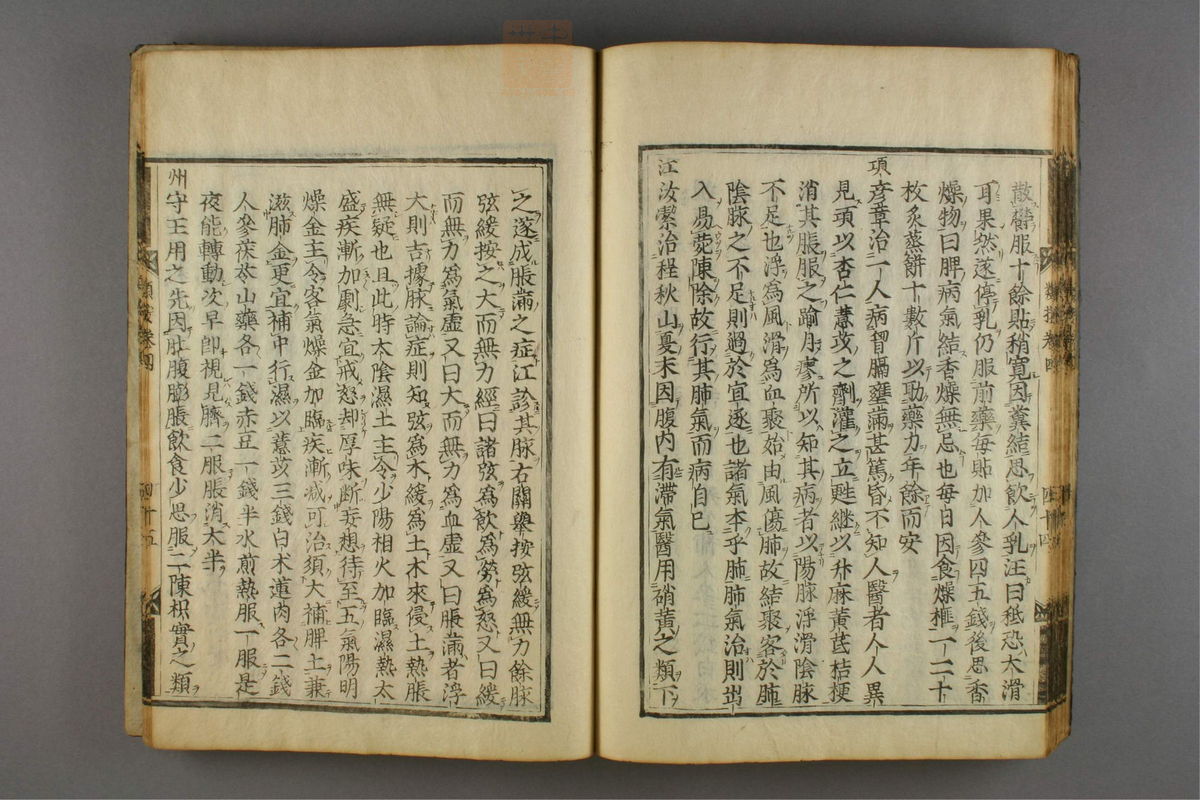 散欝服十餘貼稍寛因糞結思飲人乳汪曰秪恐大滑
耳果然遂停乳仍服前藥每貼加人參四五錢後思香
燥物曰脾病氣結香燥無忌也每日因食燥榧一二十
枚炙蒸餅十數片以助藥力年餘而安
項彦章治一人病胷膈壅滿甚篤昏不知人醫者人人異
見項以杏仁薏苡之劑灌之立甦繼以升麻黃芪桔梗
消其脹服之踰月瘳所以知其病者以陽脉浮滑陰脉
不足也浮爲風滑爲血聚始由風傷肺故結聚客於肺
陰脉之不足則過於宜逐也諸氣本乎肺肺氣治則出
入易菀陳除故行其肺氣而病自已
江汝潔治程秋山夏末因腹内有滯氣醫用硝黃之類下
之遂成脹滿之症江診其脉右關舉按弦緩無力餘脉
弦緩按之大而無力經曰諸弦爲飲爲勞爲怒又曰緩
而無力爲氣虛又曰大而無力爲血虛又曰脹滿者浮
大則吉據脉論症則知弦爲木緩爲土木來侵土熱脹
無疑也且此時太陰濕土主令少陽相火加臨濕熱太
盛疾漸加劇急宜戒怒却厚味断妄想待至五氣陽明
燥金主令客氣燥金加臨疾漸减可治須大補脾土兼
滋肺金更宜補中行濕以薏苡三錢白术蓮肉各二錢
人參茯苓山藥各一錢赤豆一錢半水煎熱服一服是
夜能轉動次早卽視見臍二服脹消大半
州守王用之先因肚腹膨脹飲食少思服二陳枳實之類
類按卷四
四十四
四十五